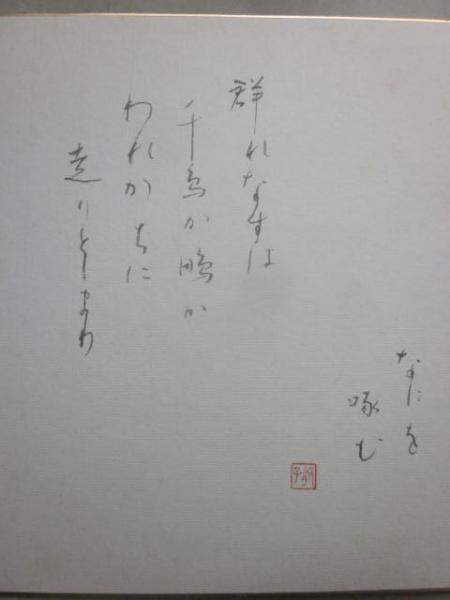 群れなすは
千鳥か鴫か
われかちに
走りとゝまり
なにを
啄む